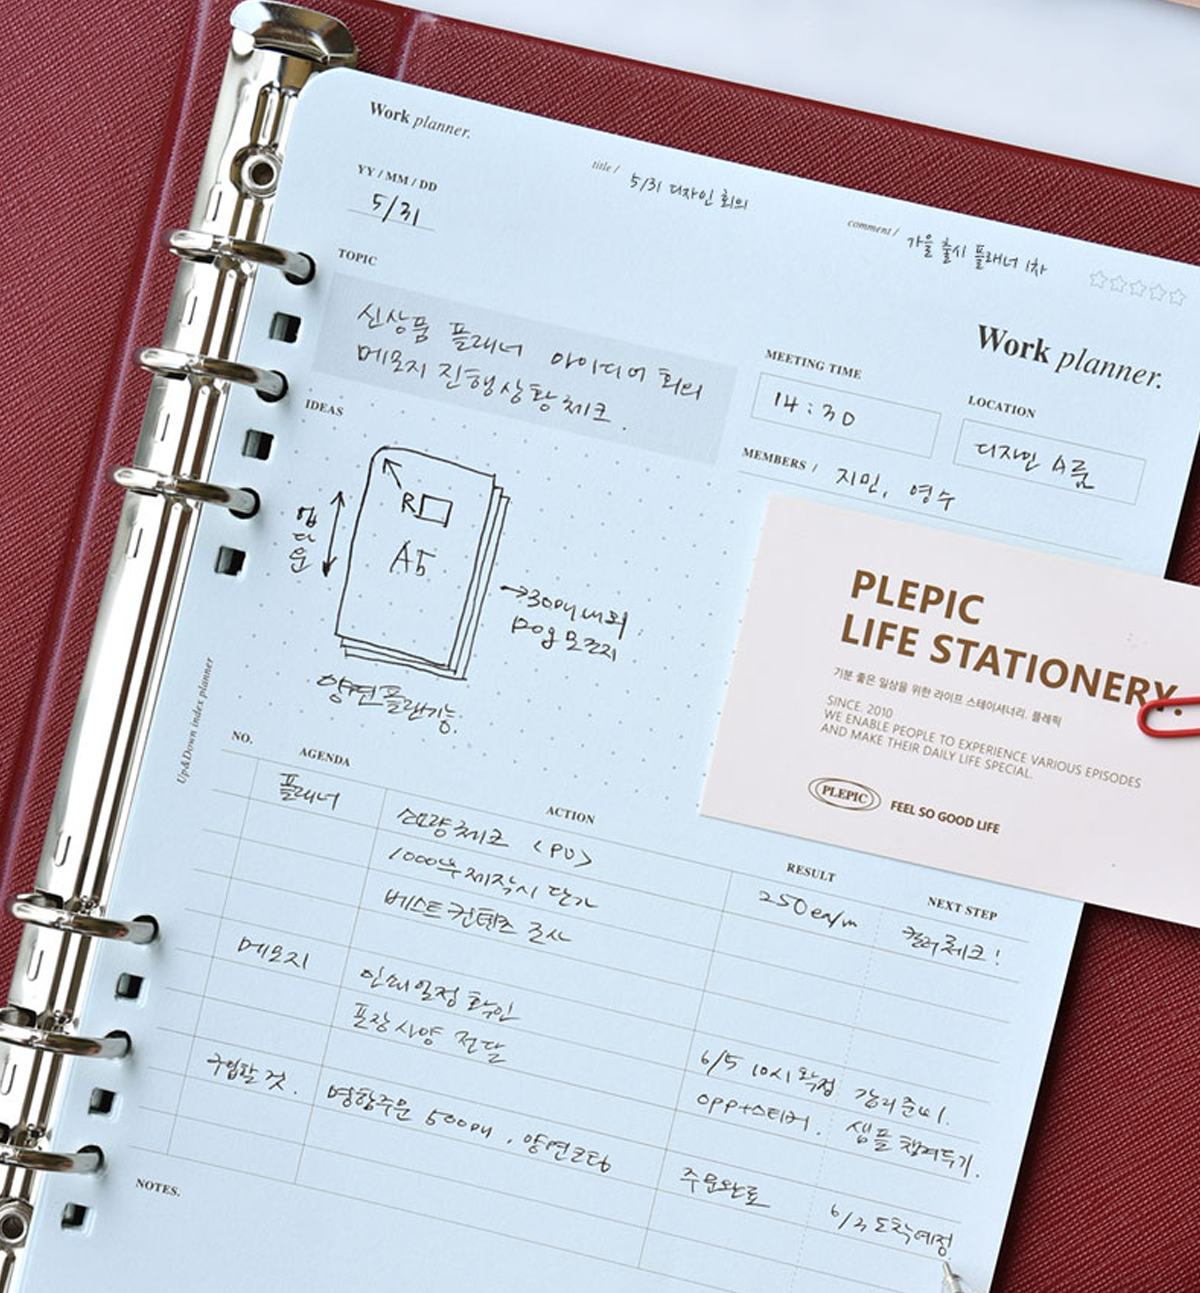 Work planner.
title / 5/31 디자인 회의
comment / 가을 출시 플래너 1차
YY / MM / DD
5/31
TOPIC
신상품 플래너 아이디어 회의
메모지 진행상황체크.
Work planner.
MEETING TIME
14:30
LOCATION
디자인 A룸
MEMBERS / 지민, 영수
IDEAS
R
A5
업다운
→30매 내외
80g 모조지
양면플래너 가능.
PLEPIC
LIFE STATIONERY.
기분 좋은 일상을 위한 라이프 스테이셔너리. 플레픽
SINCE. 2010
WE ENABLE PEOPLE TO EXPERIENCE VARIOUS EPISODES
AND MAKE THEIR DAILY LIFE SPECIAL.
PLEPIC FEEL SO GOOD LIFE
Up&Down index planner
NO. AGENDA ACTION RESULT NEXT STEP
플래너 소요량체크 (PU) 250ea/m 컬러체크!
1000부 제작시 단가
베스트 컨텐츠 조사
메모지 인쇄일정 확인 6/5 10시 확정 감리준비.
포장사양 전달 opp+스티커. 샘플 챙겨두기.
구입할 것. 명함주문 500매, 양면코팅 주문완료 6/3 도착예정
NOTES.